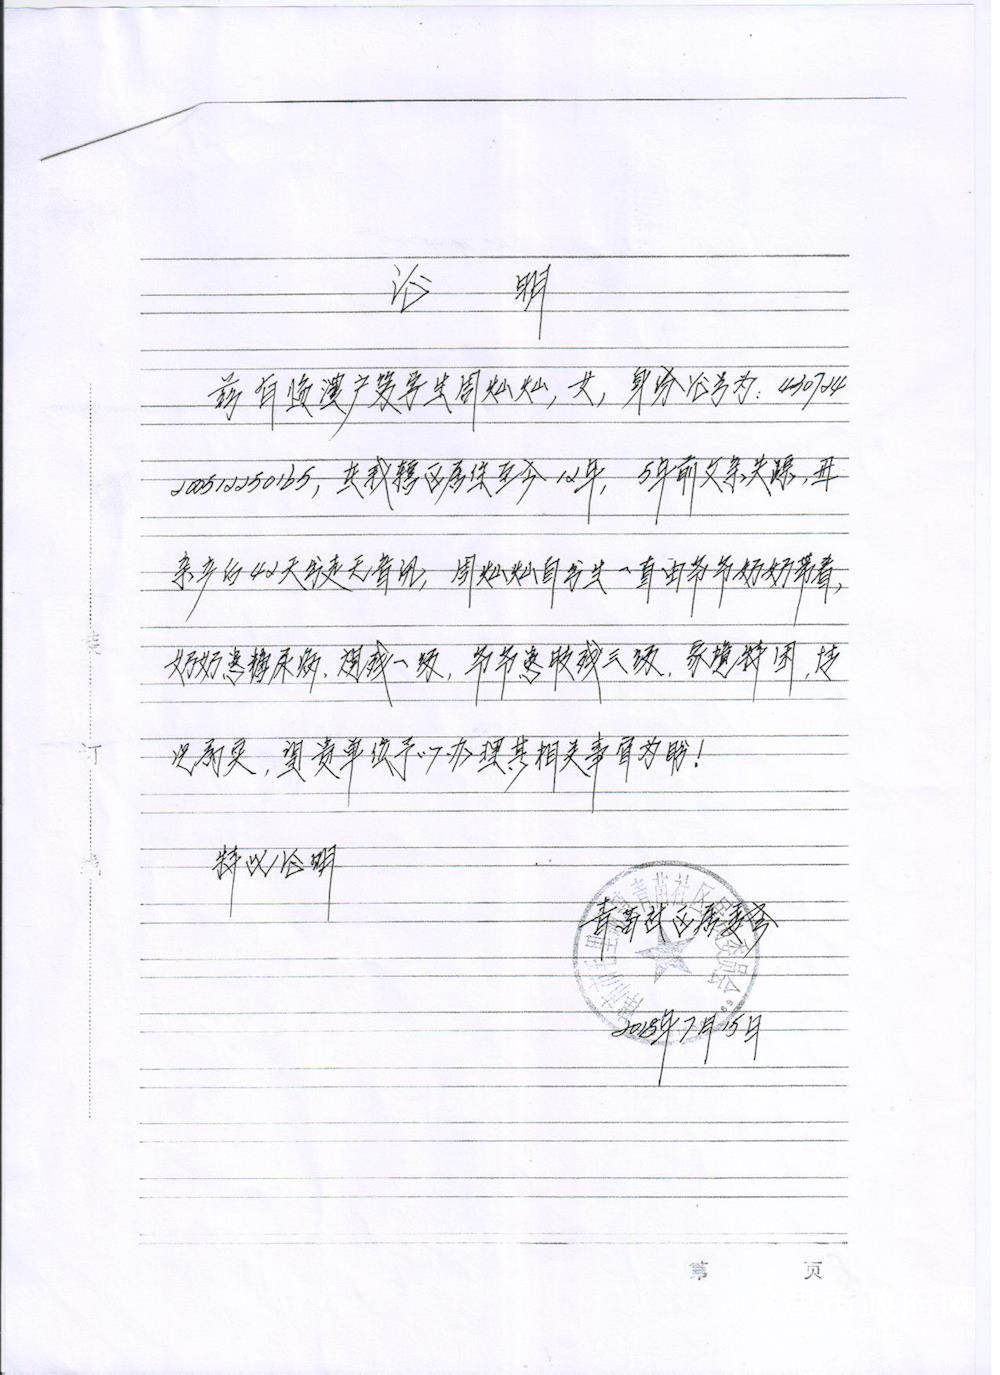 证 明
兹有临澧户籍学生周灿灿,女,身份证号为:430724
200512250165,在我辖区居住至今12年,5年前父亲失踪,母
亲产后42天出走无音讯,周灿灿自出生一直由爷爷奶奶带着,
奶奶患糖尿病、 爷爷患 家境特困,情
况属实,望贵单位予以办理其相关事宜为盼!
特此证明
青苗社区居委会
2018年7月15日
装
订
线
第 页